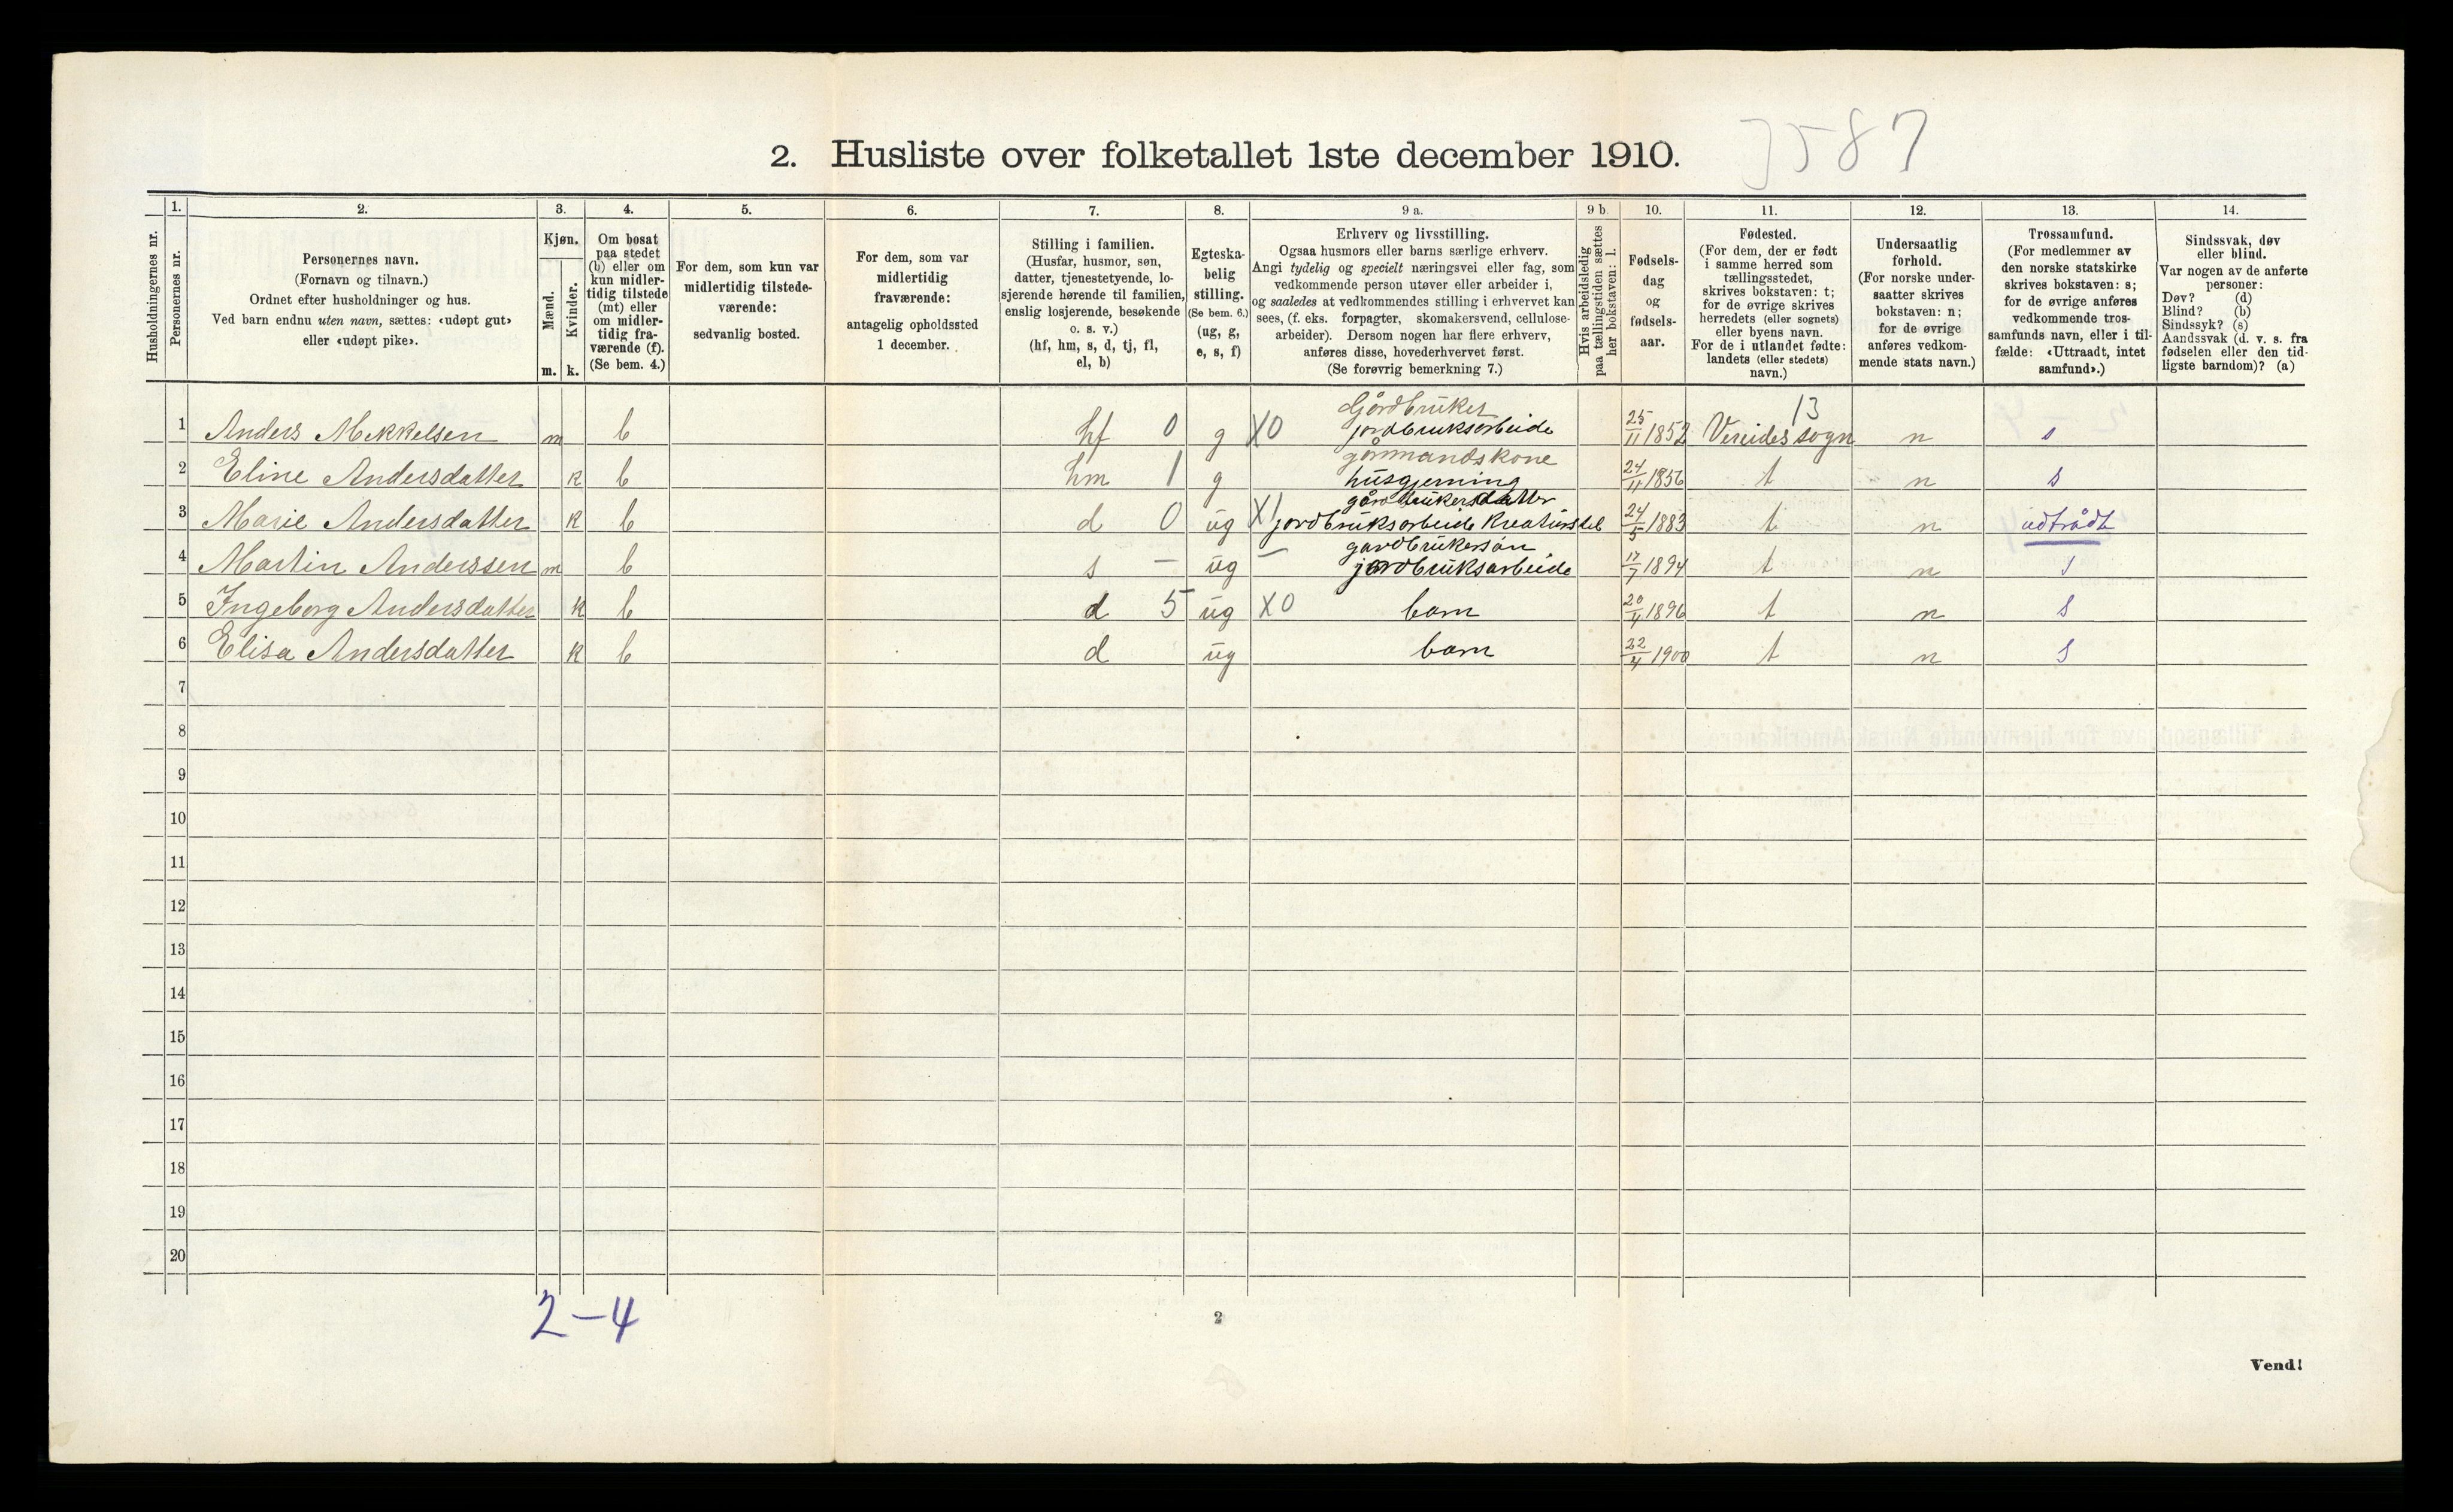 2. Husliste over folketallet 1ste december 1910.
3587
Husholdningernes nr.
1.
Personernes nr.
2.
Personernes navn.
(Fornavn og tilnavn.)
Ordnet efter husholdninger og hus.
Ved barn endnu uten navn, sættes: «udøpt gut»
eller «udøpt pike».
3.
Kjøn.
Mænd.
Kvinder.
m. k.
4.
Om bosat
paa stedet
(b) eller om
kun midler-
tidig tilstede
(mt) eller
om midler-
tidig fra-
værende (f).
(Se bem. 4.)
5.
For dem, som kun var
midlertidig tilstede-
værende:
sedvanlig bosted.
6.
For dem, som var
midlertidig
fraværende:
antagelig opholdssted
1 december.
7.
Stilling i familien.
(Husfar, husmor, søn,
datter, tjenestetyende, lo-
sjerende hørende til familien,
enslig losjerende, besøkende
o. s. v.)
(hf, hm, s, d, tj, fl,
el, b)
8.
Egteska-
belig
stilling.
(Se bem. 6.)
(ug, g,
e, s, f)
9 a.
Erhverv og livsstilling.
Ogsaa husmors eller barns særlige erhverv.
Angi tydelig og specielt næringsvei eller fag, som
vedkommende person utøver eller arbeider i,
og saaledes at vedkommendes stilling i erhvervet kan
sees, (f. eks. forpagter, skomakersvend, cellulose-
arbeider). Dersom nogen har flere erhverv,
anføres disse, hovederhvervet først.
(Se forøvrig bemerkning 7.)
9 b
Hvis arbeidsledig
paa tællingstiden sættes
her bokstaven: l.
10.
Fødsels-
dag
og
fødsels-
aar.
11.
Fødested.
(For dem, der er født
i samme herred som
tællingsstedet,
skrives bokstaven: t;
for de øvrige skrives
herredets (eller sognets)
eller byens navn.
For de i utlandet fødte:
landets (eller stedets)
navn.)
12.
Undersaatlig
forhold.
(For norske under-
saatter skrives
bokstaven: n;
for de øvrige
anføres vedkom-
mende stats navn.)
13.
Trossamfund.
(For medlemmer av
den norske statskirke
skrives bokstaven: s;
for de øvrige anføres
vedkommende tros-
samfunds navn, eller i til-
fælde: «Uttraadt, intet
samfund».)
14.
Sindssvak, døv
eller blind.
Var nogen av de anførte
personer:
Døv? (d)
Blind? (b)
Sindssyk? (s)
Aandssvak (d. v. s. fra
fødselen eller den tid-
ligste barndom)? (a)
Gårdbruker 13
1 Anders Mikkelsen m b hf 0 g X0 jordbruksarbeide 25/11 1852 Vereides sogn n s
gårmandskone
2 Eline Andersdatter k b hm 1 g husgjerning 24/11 1856 t n s
gårdbrukersdatter
3 Marie Andersdatter k b d 0 ug X1 jordbruksarbeide Kreaturstel 24/5 1883 t n udtrådt
gardbrukersøn
4 Martin Anderssen m b s – ug – jordbruksarbeide 17/7 1894 t n s
5 Ingeborg Andersdatter k b d 5 ug X0 barn 20/4 1896 t n s
6 Elisa Andersdatter k b d ug barn 22/4 1900 t n s
7
8
9
10
11
12
13
14
15
16
17
18
19
20
2-4
2
Vend!